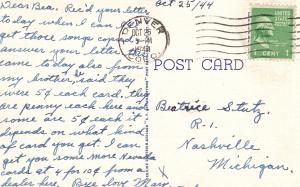 Oct 25/44
Dear Bea. Rec'd your letter
today when I can
get those songs
answer your letter
came today also from
my brother, said they
were 5¢ each. they
are penny each here and
some are 5¢ each it
depends on what kind
of card you get. I can
get you some more Nevada
cards at 4 for 10¢ from a
dealer here. Bye love Mary
DENVER
OCT 26
COLO.
POST CARD
1 CENT 1
Beatrice Stutz,
R-1.
Nashville
Michigan.